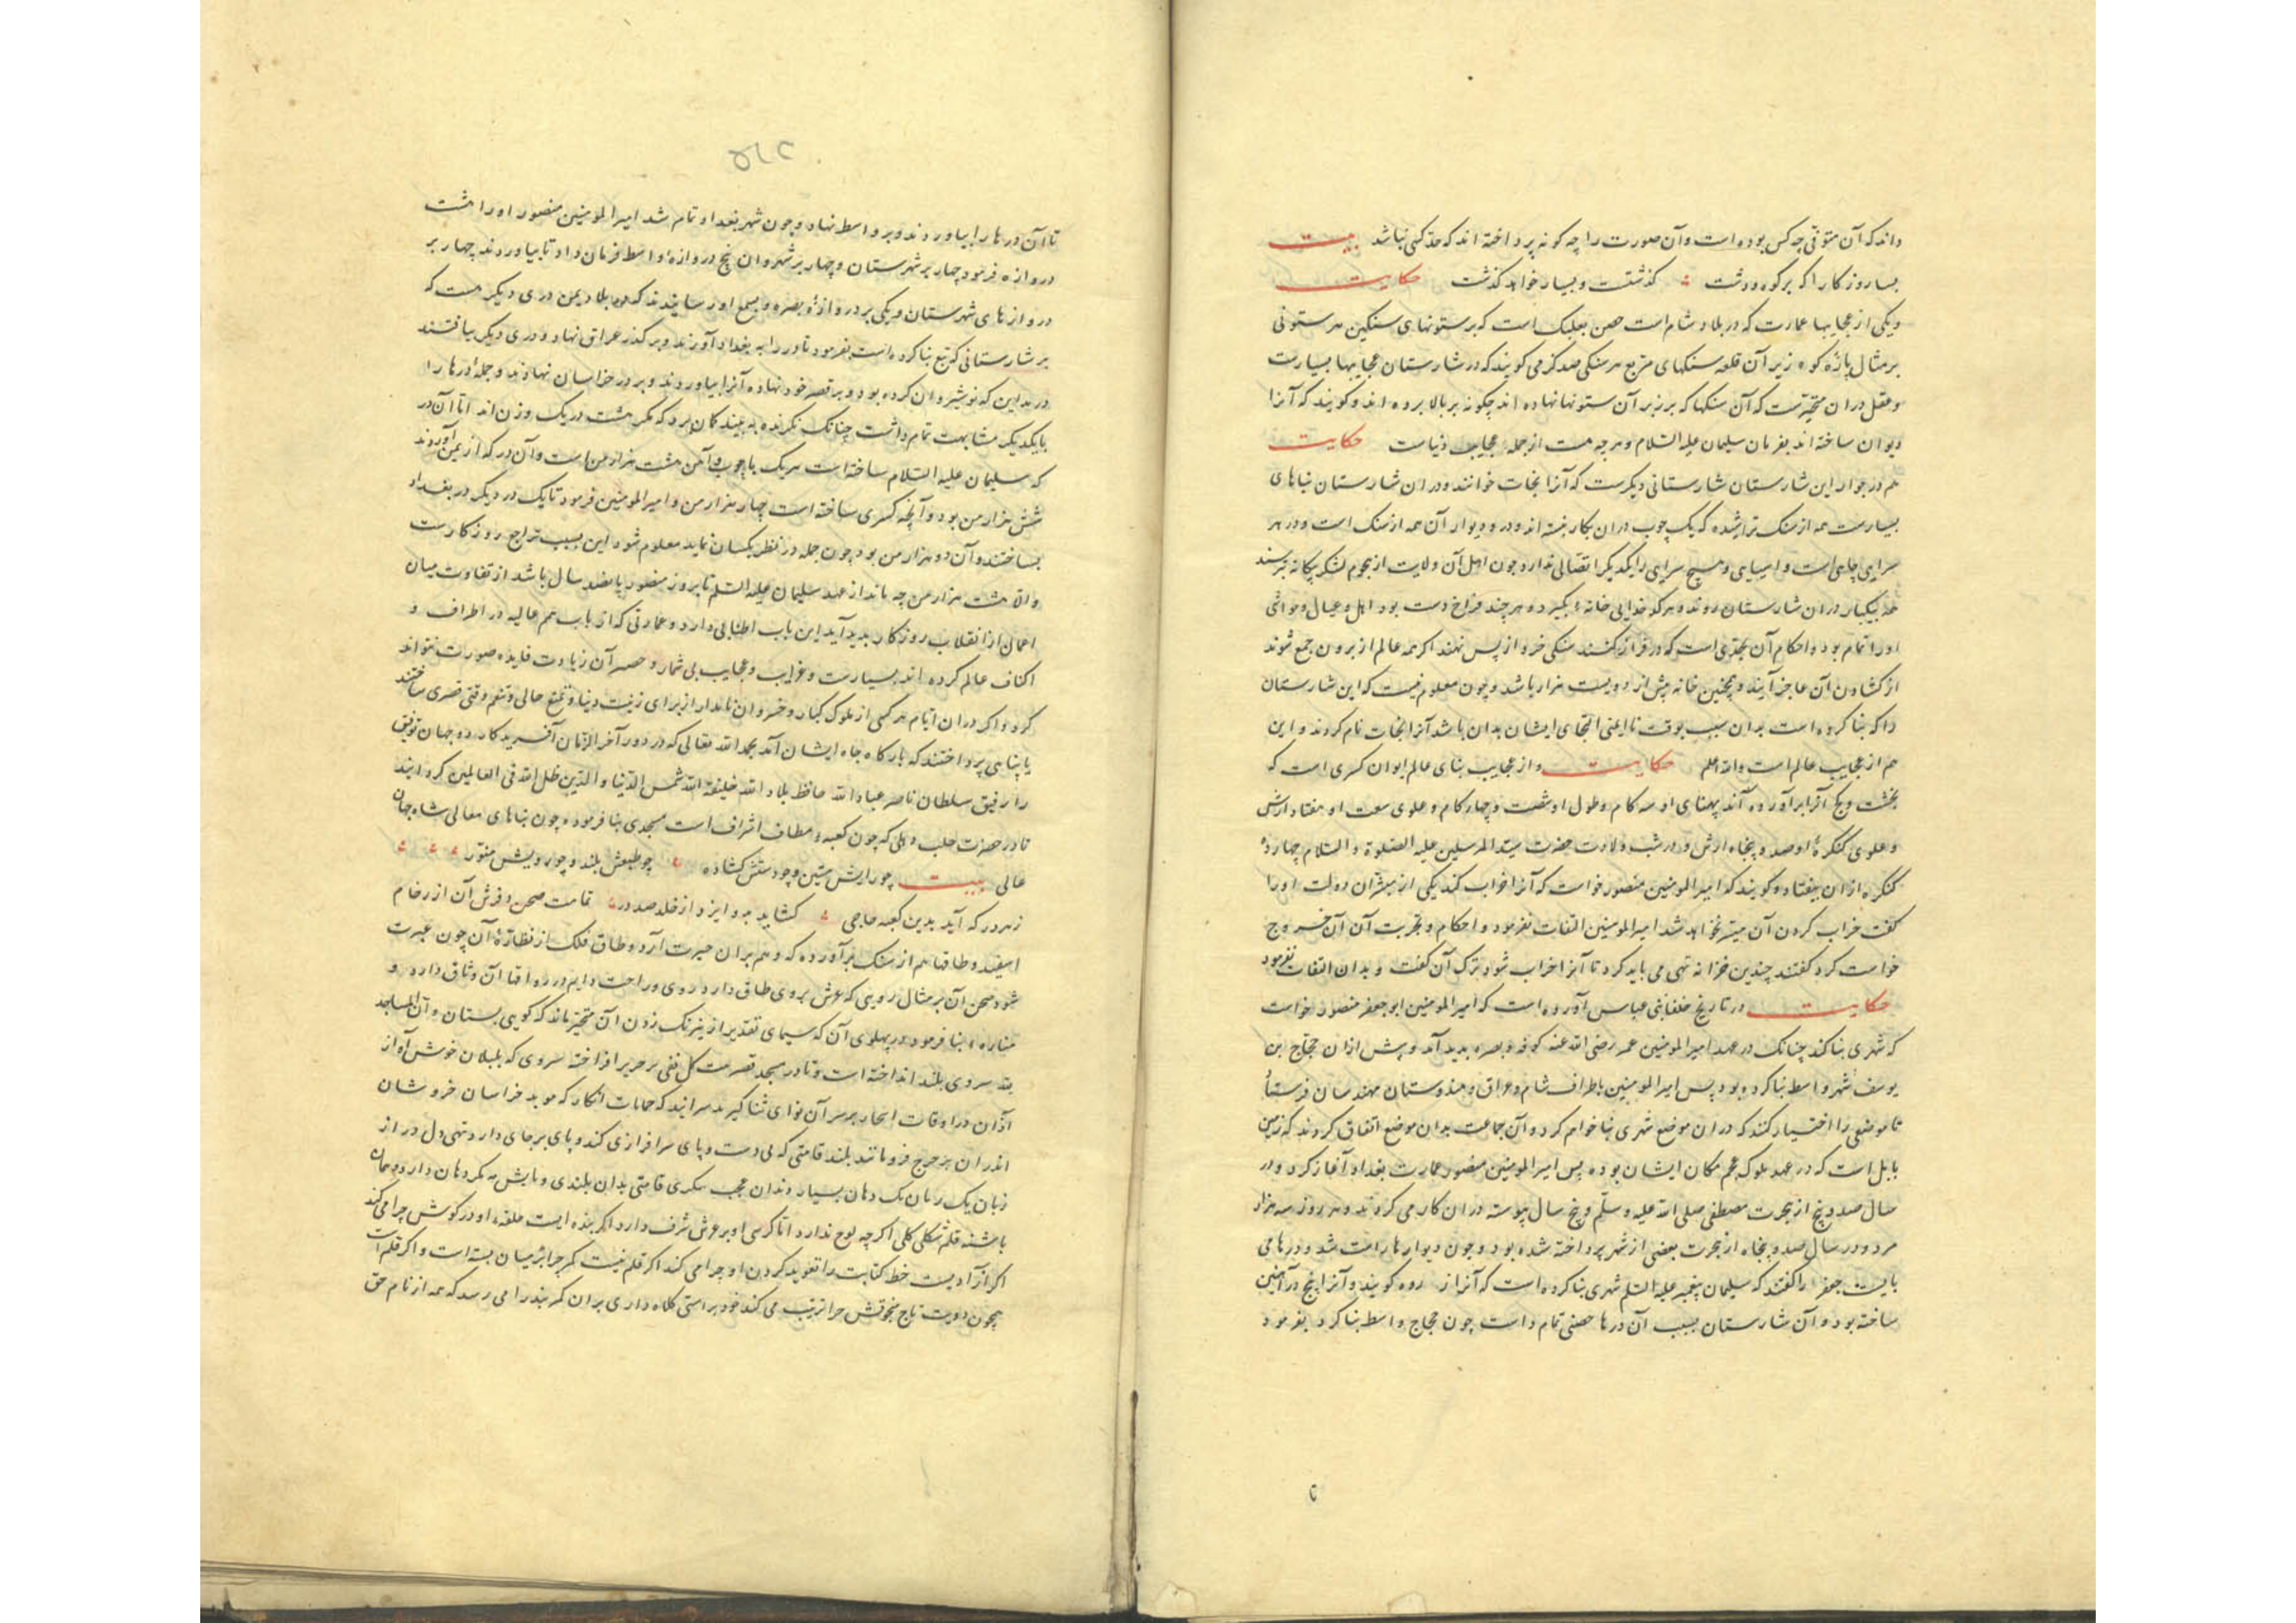 داند که آن متوفی چه کس بوده است و آن صورت را چه کونه پرداخته اند که حد کسی نباشد بیت
بسا روزکارا که بر کوه و دشت کذشتست و بسیار خواهد کذشت حکایت
و یکی از عجایبها عمارت که در بلاد شام است حصن بعلبک است که بر ستونهای سنکین هر ستونی
بر مثال پارهٔ کوه زیر آن قلعه سنکهای مربع هر سنکی صد کز می کویند که در شارستان عجایبها بسیارست
و عقل دران متحیرست که آن سنکها که بر زبر آن ستونها نهاده اند چکونه بر بالا برده اند و کویند که آنرا
دیوان ساخته اند بفرمان سلیمان علیه السلام و هرچه هست از جمله عجایب دنیاست حکایت
هم در جوار این شارستان شارستانی دیکرست که آنرا نجات خوانند و دران شارستان بناهای
بسیارست همه از سنک تراشیده که یک چوب دران بکار نبسته اند و در و دیوار آن همه از سنک است و در هر
سرای چاهی است و اسیایی و هیچ سرای را یکدیکر اتصالی ندارد چون اهل آن ولایت از هجوم لشکر بیکانه بترسند
همه بیکبار دران شارستان روند و هر کدخدایی خانهٔ بکیرد و هر چند فراخ دست بود اهل و عیال و مواشی
اورا تمام بود و احکام آن بحدی است که در فراز کنند سنکی خرد از پس نهند اکر همه عالم از برون جمع شوند
از کشادن آن عاجز آیند و همچنین خانه پیش از دویست هزار باشد و چون معلوم نیست که این شارستان
را که بنا کرده است بدان سبب بوقت ناایمنی التجای ایشان بدان باشد آنرا نجات نام کردند و این
هم از عجایب عالم است والله اعلم حکایت و از عجایب بنای عالم ایوان کسری است که
بخشت و کچ آنرا برآورده آند پهنای او سه کام و طول او شصت و چهار کام و علوی سعت او هفتاد ارش
و علوی کنکرهٔ او صد و پنجاه ارش و در شب ولادت حضرت سید المرسلین علیه الصلوة و السلام چهارده
کنکره ازان بیفتاد و کویند که امیر المومنین منصور خواست که آنرا خراب کند یکی از مبشران دولت اورا
کفت خراب کردن آن میسر نخواهد شد امیر المومنین التفات نفرمود و احکام و تجربت آن آن خروج
خواست کرد کفتند چندین خزانه تهی می باید کرد تا آنرا خراب شود ترک آن کفت و بدان التفات نفرمود
حکایت در تاریخ خلفا بنی عباس آورده است که امیر المومنین ابو جعفر منصور خواست
که شهری بنا کند چنانک در عهد امیر المومنین عمر رضی الله عنه کوفه و بصره بدید آمد و پیش ازان حجاج ابن
یوسف شهر واسط بنا کرده بود پس امیر المومنین باطراف شام و عراق و هندوستان مهندسان فرستاد
تا موضعی را اختیار کنند که دران موضع شهری بنا خواهم کرد و آن جماعت بدان موضع اتفاق کردند که زمین
بابل است که در عهد ملوک عجم مکان ایشان بوده پس امیر المومنین منصور عمارت بغداد آغاز کرد و در
سال صد و پنج از هجرت مصطفی صلی الله علیه وسلم و پنج سال پیوسته دران کار می کردند و هر روز سه هزار
مرد و در سال صد و پنجاه از هجرت بعضی از شهر پرداخته شده بود و چون دیوارها راست شد و درها می
بایست جعفر را کفتند که سلیمان پیغمبر علیه السلم شهری بنا کرده است که آنرا روه کویند و آنرا پنج در آهنین
ساخته بود و آن شارستان بسبب آن درها حصنی تمام داست چون حجاج واسط بنا کرد بفرمود
۵۱۲
تا آن درها را بیاوردند و بر واسط نهاد و چون شهر بغداد تمام شد امیر المومنین منصور اورا هشت
دروازه فرمود چهار بر شهرستان و چهار بر شهر و ان پنج دروازهٔ واسط فرمان داد تا بیاوردند چهار بر
دروازهای شهرستان و یکی بر دروازهٔ بصره و بسمع او رسانیدند که در بلاد یمن دری دیکر هست که
بر شارستانی که تبع بنا کرده است بفرمود تا در را به بغداد آورند و بر کذر عراق نهاد و دری دیکر بیافتند
در مداین که نوشیروان کرده بود و بر قصر خود نهاده آنرا بیاوردند و بر در خراسان نهادند و جملهٔ درها را
با یکدیکر مشابهت تمام داشت چنانک نکرنده به بیند کمان برد که مکر هشت در یک وزن اند اما آن در
که سلیمان علیه السلام ساخته است هر یک با چوب و آهن هشت هزار من است و آن در که از یمن آوردند
شش هزار من بود و آنچه کسری ساخته است چهار هزار من و امیر المومنین فرمود تا یک در دیکر در بغداد
بساختند و آن دو هزار من بود چون جمله در نظر یکسان نماید معلوم شود این بسبب تراجع روزکارست
والا هشت هزار من چه ماند از عهد سلیمان علیه السلم تا بروز منصور پانصد سال باشد از تفاوت میان
اعمال از انقلاب روزکار بدید آید این باب اطنابی دارد و عمارتی که ارباب همم عالیه در اطراف و
اکناف عالم کرده اند بسیارست و غرایب و عجایب بی شمار و حصر آن زیادت فایده صورت نتواند
کرد و اکر دران ایام هر کسی از ملوک کبار و خسروان نامدار از برای زینت دنیا و تمتع حالی و تنعم وقتی قصری ساختند
یا بنایی پرداختند که بارکاه جاه ایشان آمد بحمد الله تعالی که در دور آخر الزمان آفریدکار ده جهان توفیق
را رفیق سلطان ناصر عباد الله حافظ بلاد الله خلیفة الله شمس الدنیا و الدین ظل الله فی العالمین کردانید
تا در حضرت جلت دهلی که چون کعبه مطاف اشراف است مسجدی بنا فرموده چون بناهای معالی شاه جهان
عالی بیت چو رایش متین و چو دستش کشاده چو طبعش بلند و چو رویش منور
ز هر در که آید بدین کعبه حاجی کشاید بدو ایزد از خلد صد در تمامت صحن و فرش آن از رخام
اسفید و طاقها هم از سنک برآورده که وهم بران حیرت آرد و طاق فلک از نظارهٔ آن چون عبرت
شود صحن آن بر مثال رویی که عرش بروی طاق دارد روی و راحت دایم در رواقها آن وثاق دارد و
مناره بنا فرمود در پهلوی آن که سیمای تقدیر از نیرنک زدن آن متحیر ماند که کویی بستان و آن المساجد
لله سروی بلند انداخته است و تا در مسجد قصریست کل نقی بر حریر افراخته سروی که بلبلان خوش آواز
آذان در اوقات اسحار بر سر آن نوای ثنا کیرید سرایند که حمامات افکار که موبد خراسان خروشان
اندران هرج فرومانند بلند قامتی که بی دست و پای سرافرازی کند و پای بر جای دارد تهی دل دراز
زبان یک دهان بسیار دندان عجب سکری قامتی بدان بلندی و میانش نه مکر دهان دارد و میان
باشنه قلم شکلی کلی اکرچه لوح ندارد اما کرسی او بر عرش شرف دارد اکر بنده ایست حلقه او در کوش چرا می کند
اکر آزادیست خط کتابت را تعوید کردن او چرا می کند اکر قلم نیست کمر چرا در میان بسته است و اکر قلم است
همچون دویت تاج منجوقش چرا ترتیب می کند خود براستی کلاه داری بران کمربند را می رسد که همه از نام حق